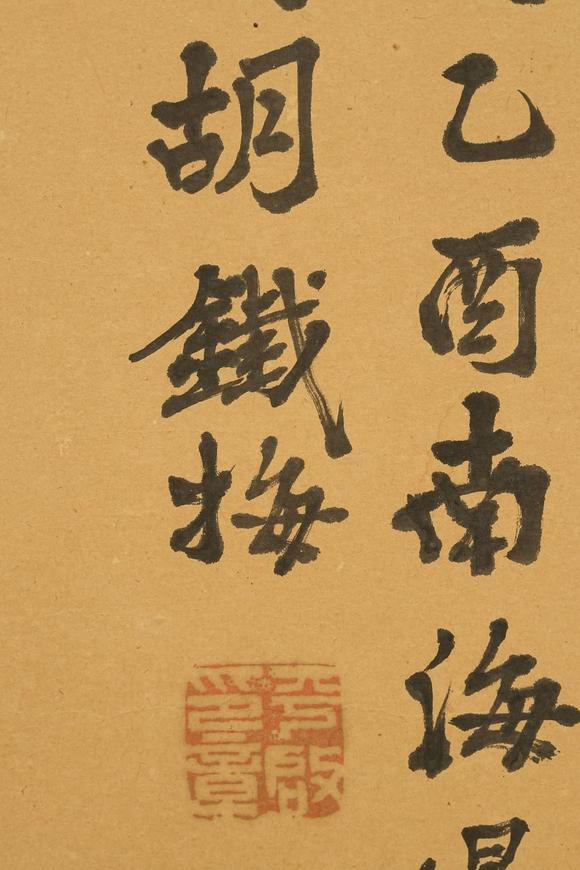 乙酉南海
胡鐵梅